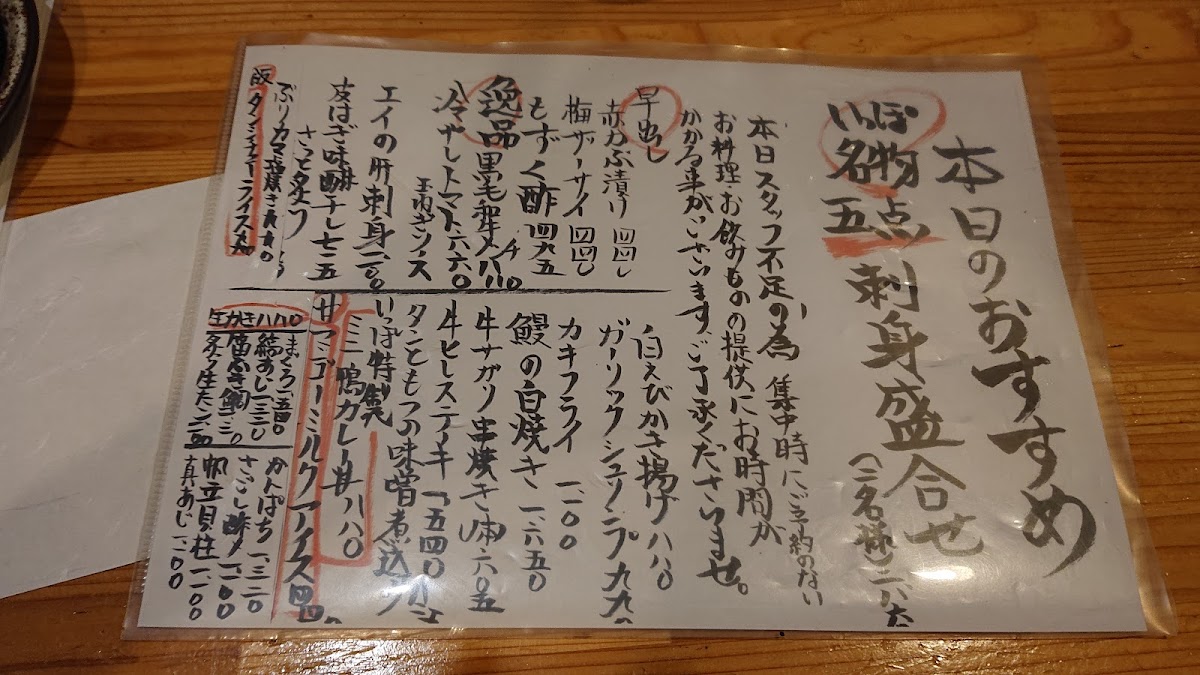 本日のおすすめ
いっぽ
名物
五点刺身盛合せ
(二名様)
本日スタッフ不足の為
集中時にご予約のない
お料理・お飲みものの提供にお時間が
かかる事がございます。ご了承くださいませ。
早出し
赤かぶ漬け 四四〇
梅ザーサイ 四四〇
もずく酢 四九五
逸品
黒毛和牛メンチ 八八〇
冷やしトマト 六六〇
玉ねぎソース
エイの肝刺身
皮はぎ味醂干し 七一五
さっと炙り
ぶりカマ塩焼き
飯
白えびかき揚げ 八八〇
ガーリックシュリンプ 九九〇
カキフライ 一一〇〇
鰻の白焼き 一、六五〇
牛サガリ串焼き(二本) 六〇五
牛ヒレステーキ 一五四〇
タンともつの味噌煮込み
いっぽ特製
ミニ鴨カレー丼 八八〇
マンゴーミルクアイス 四四〇
生かき 八八〇
まぐろ 一五四〇
縞あじ 一三二〇
かんぱち 一、三二〇
さごし酢〆 一、一〇〇
帆立貝柱 一、一〇〇
真あじ 一、一〇〇